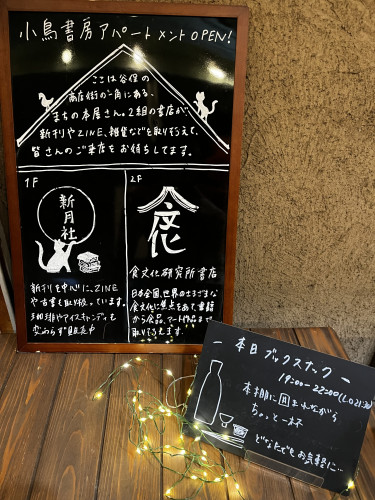 小鳥書房アパートメントOPEN!
ここは谷保の
商店街の一角にある、
まちの本屋さん。2組の書店が
新刊やZINE、雑貨などを取りそろえて、
皆さんのご来店をお待ちしてます。
1F
新月社
新刊を中心に、ZINE
や古書も取り扱っています。
珈琲やアイスキャンディも
変わらず販売中
2F
食文化
食文化研究所書店
日本全国、世界のさまざまな
食文化に焦点をあて、書籍
から食品、アート作品まで
取りそろえます。
ー本日ブックスナックー
19:00-22:00(L.O21:30)
本棚に囲まれながら
ちょっと一杯
どなたでもお気軽に…